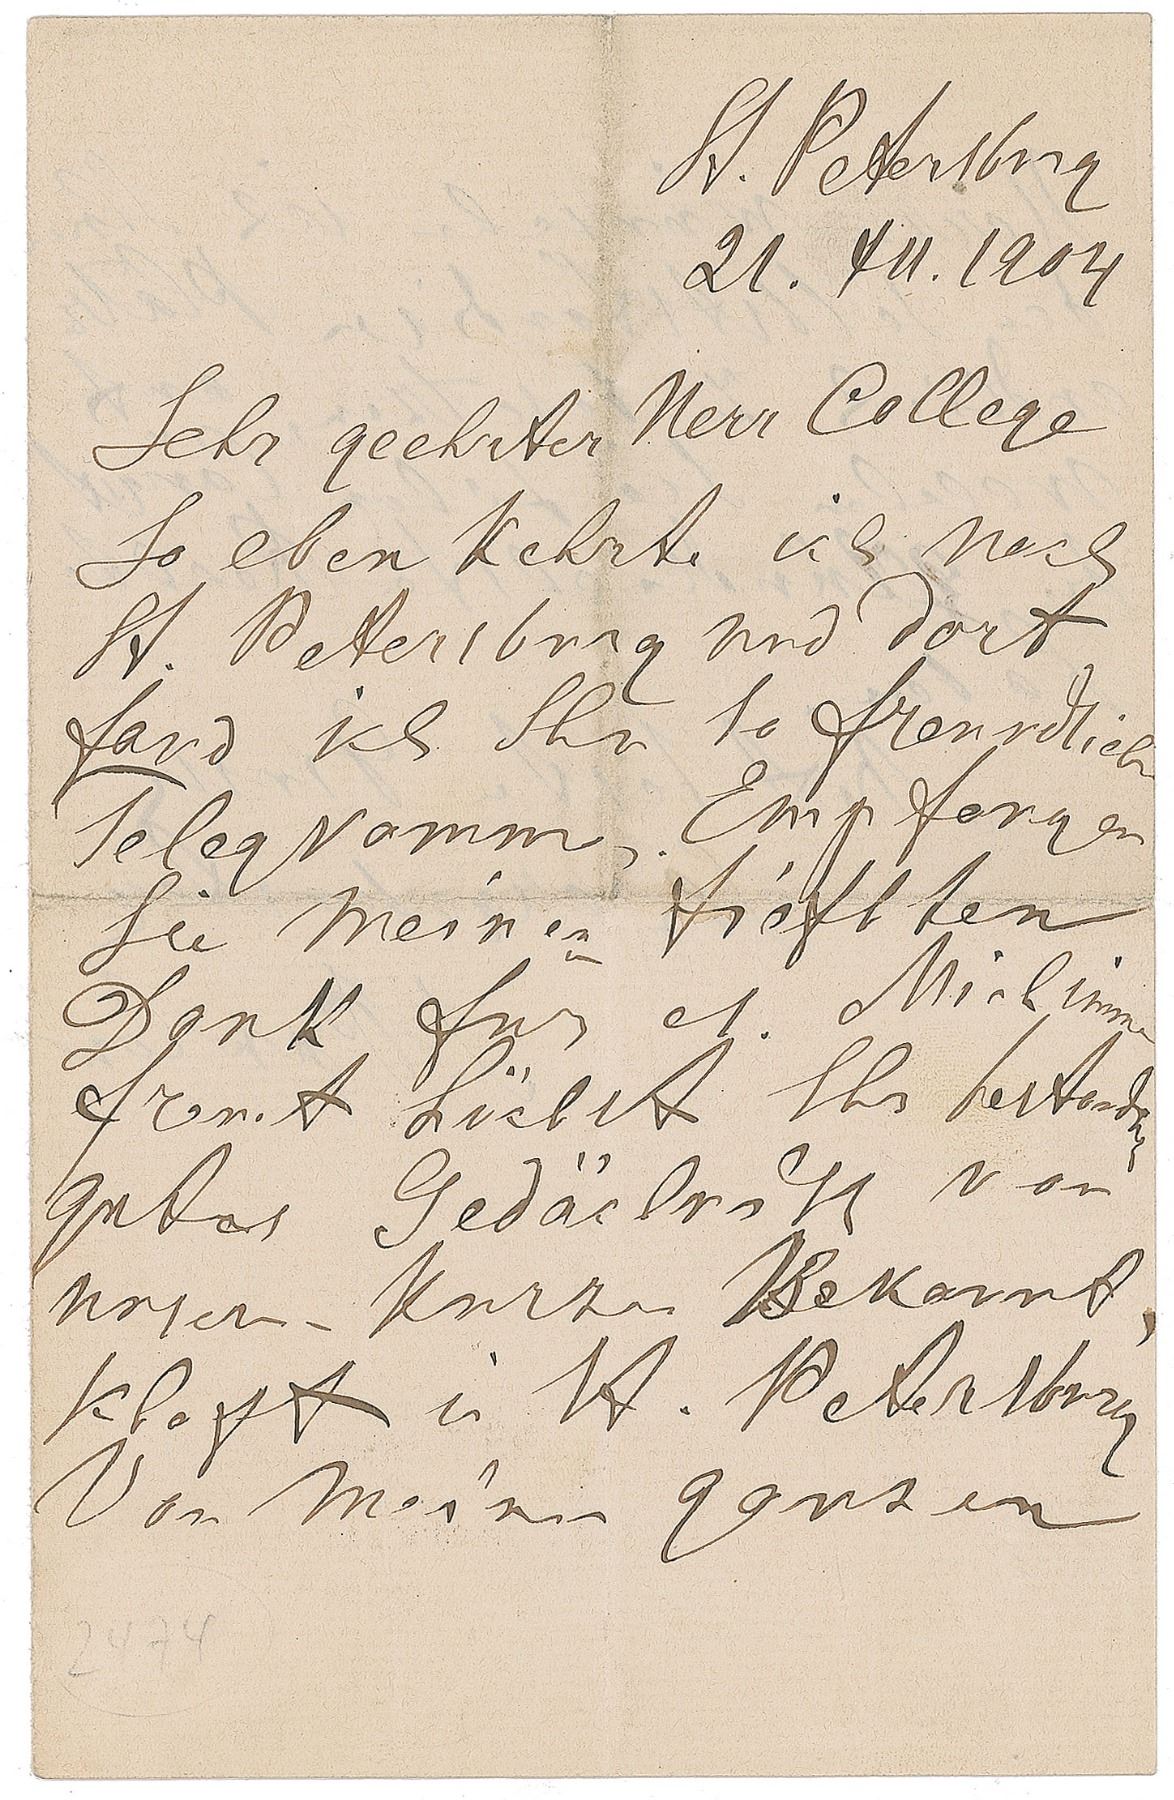 St. Petersburg
21. XII. 1904
Sehr geehrter Herr College
So eben kehrte ich nach
St. Petersburg und dort
fand ich Ihr so freundlich
Telegramm. Empfangen
Sie meinen tiefsten
Dank für es. Mich immer
freut höchst Ihr bestandig
gutes Gedächniss von
unser kurzen Bekannt,
schaft in St. Petersburg
Von meinen ganzen
2474